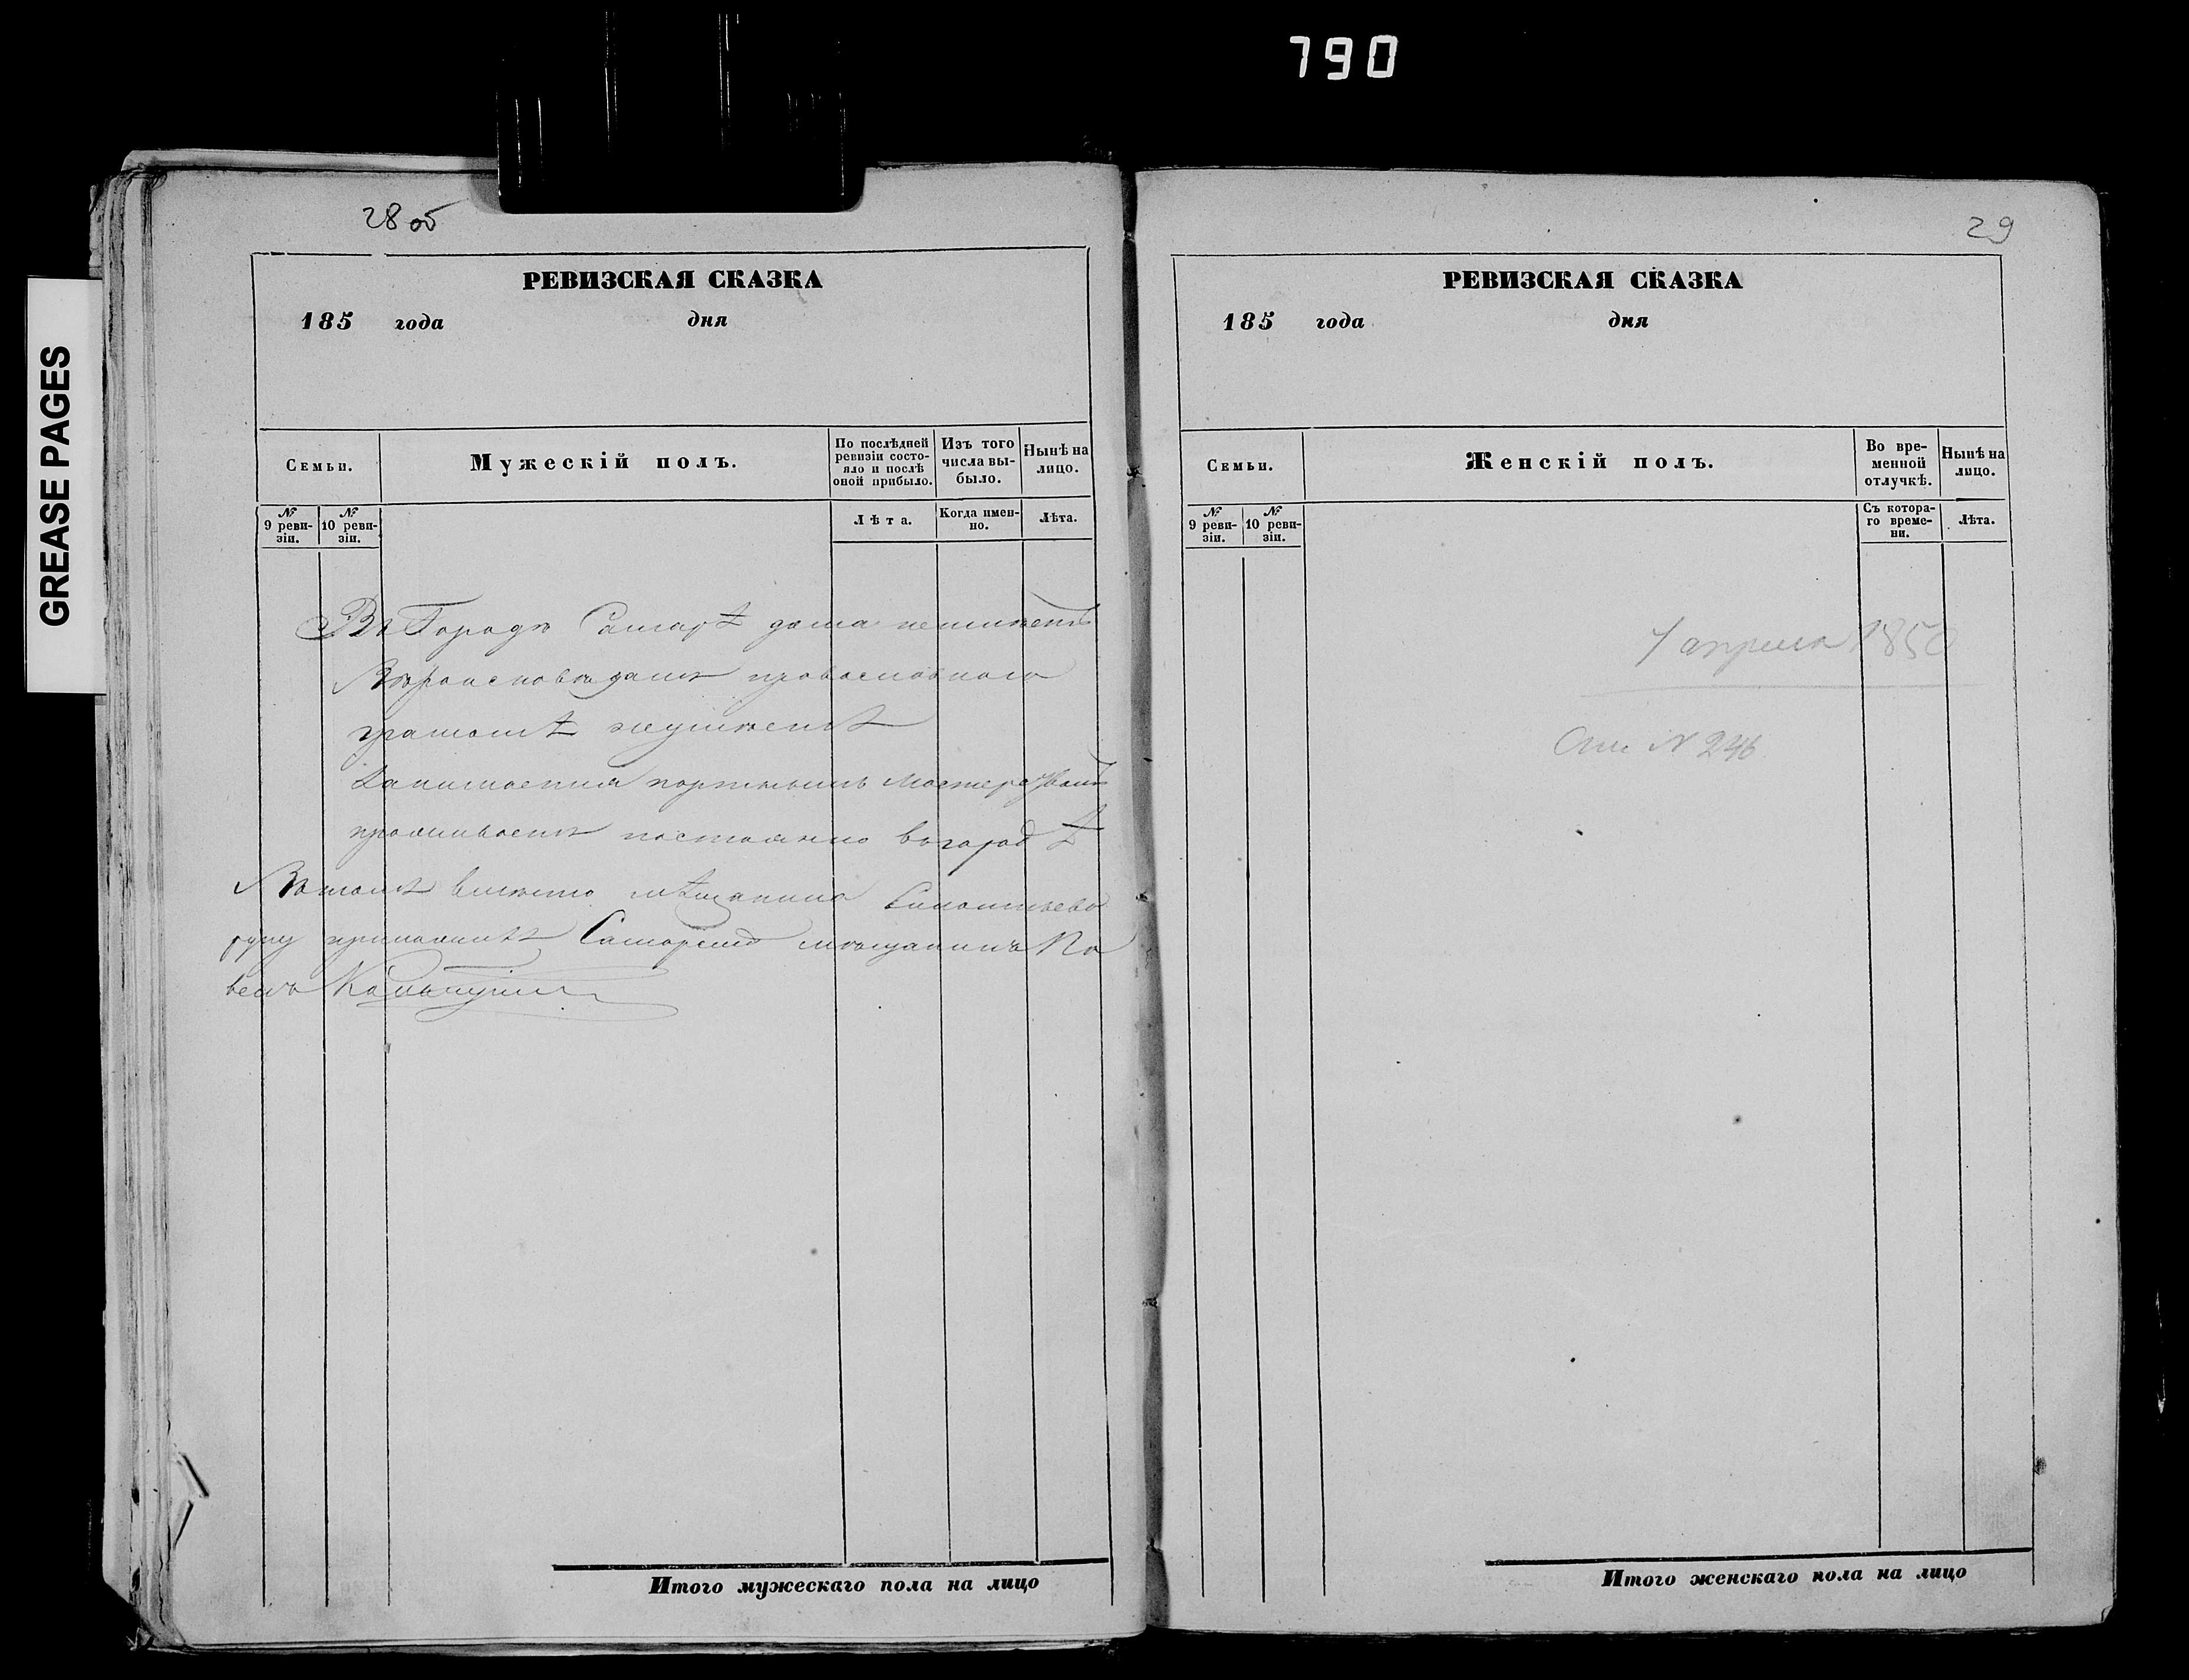 790
GREASE PAGES
28 об
РЕВИЗСКАЯ СКАЗКА
185 года дня
Семьи.
Мужескій полъ.
По послѣдней ревизіи состояло и послѣ оной прибыло.
Изъ того числа выбыло.
Нынѣ на лицо.
№ 9 ревизіи.
№ 10 ревизіи.
Лѣта.
Когда именно.
Лѣта.
Въ Городѣ Самарѣ дома неимѣетъ
Вѣроисповѣдания православного
грамотѣ неумѣетъ
Занимается портнымъ мастерствомъ
проживаетъ постоянно вгородѣ
Втомъ вместо мѣщанина
руку приложилъ Самарский мещанинъ Па
велъ
Итого мужескаго пола на лицо
29
РЕВИЗСКАЯ СКАЗКА
185 года дня
Семьи.
Женскій полъ.
Во временной отлучкѣ.
Нынѣ на лицо.
№ 9 ревизіи.
№ 10 ревизіи.
Съ котораго времени.
Лѣта.
7 апреля 185
№ 246
Итого женскаго пола на лицо